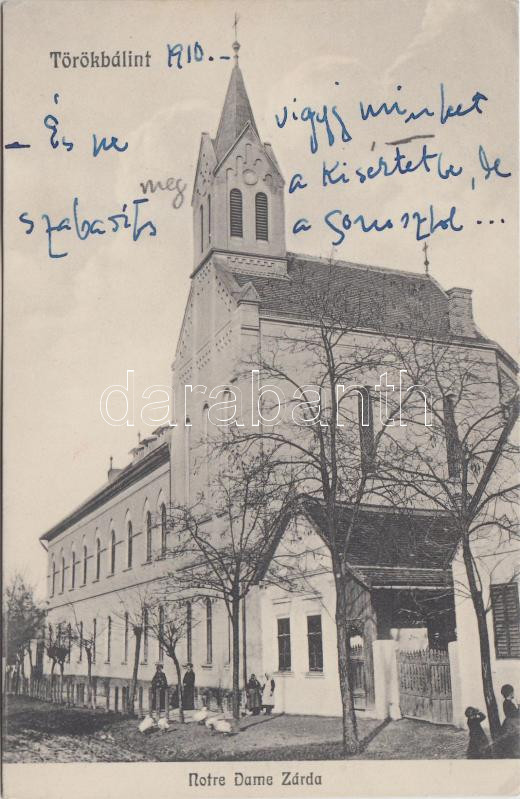 Törökbálint 1910. –
– És ne vigyj minket
meg a Kisértetbe, de
szabadits a Gonosztol ...
darabanth
Notre Dame Zárda